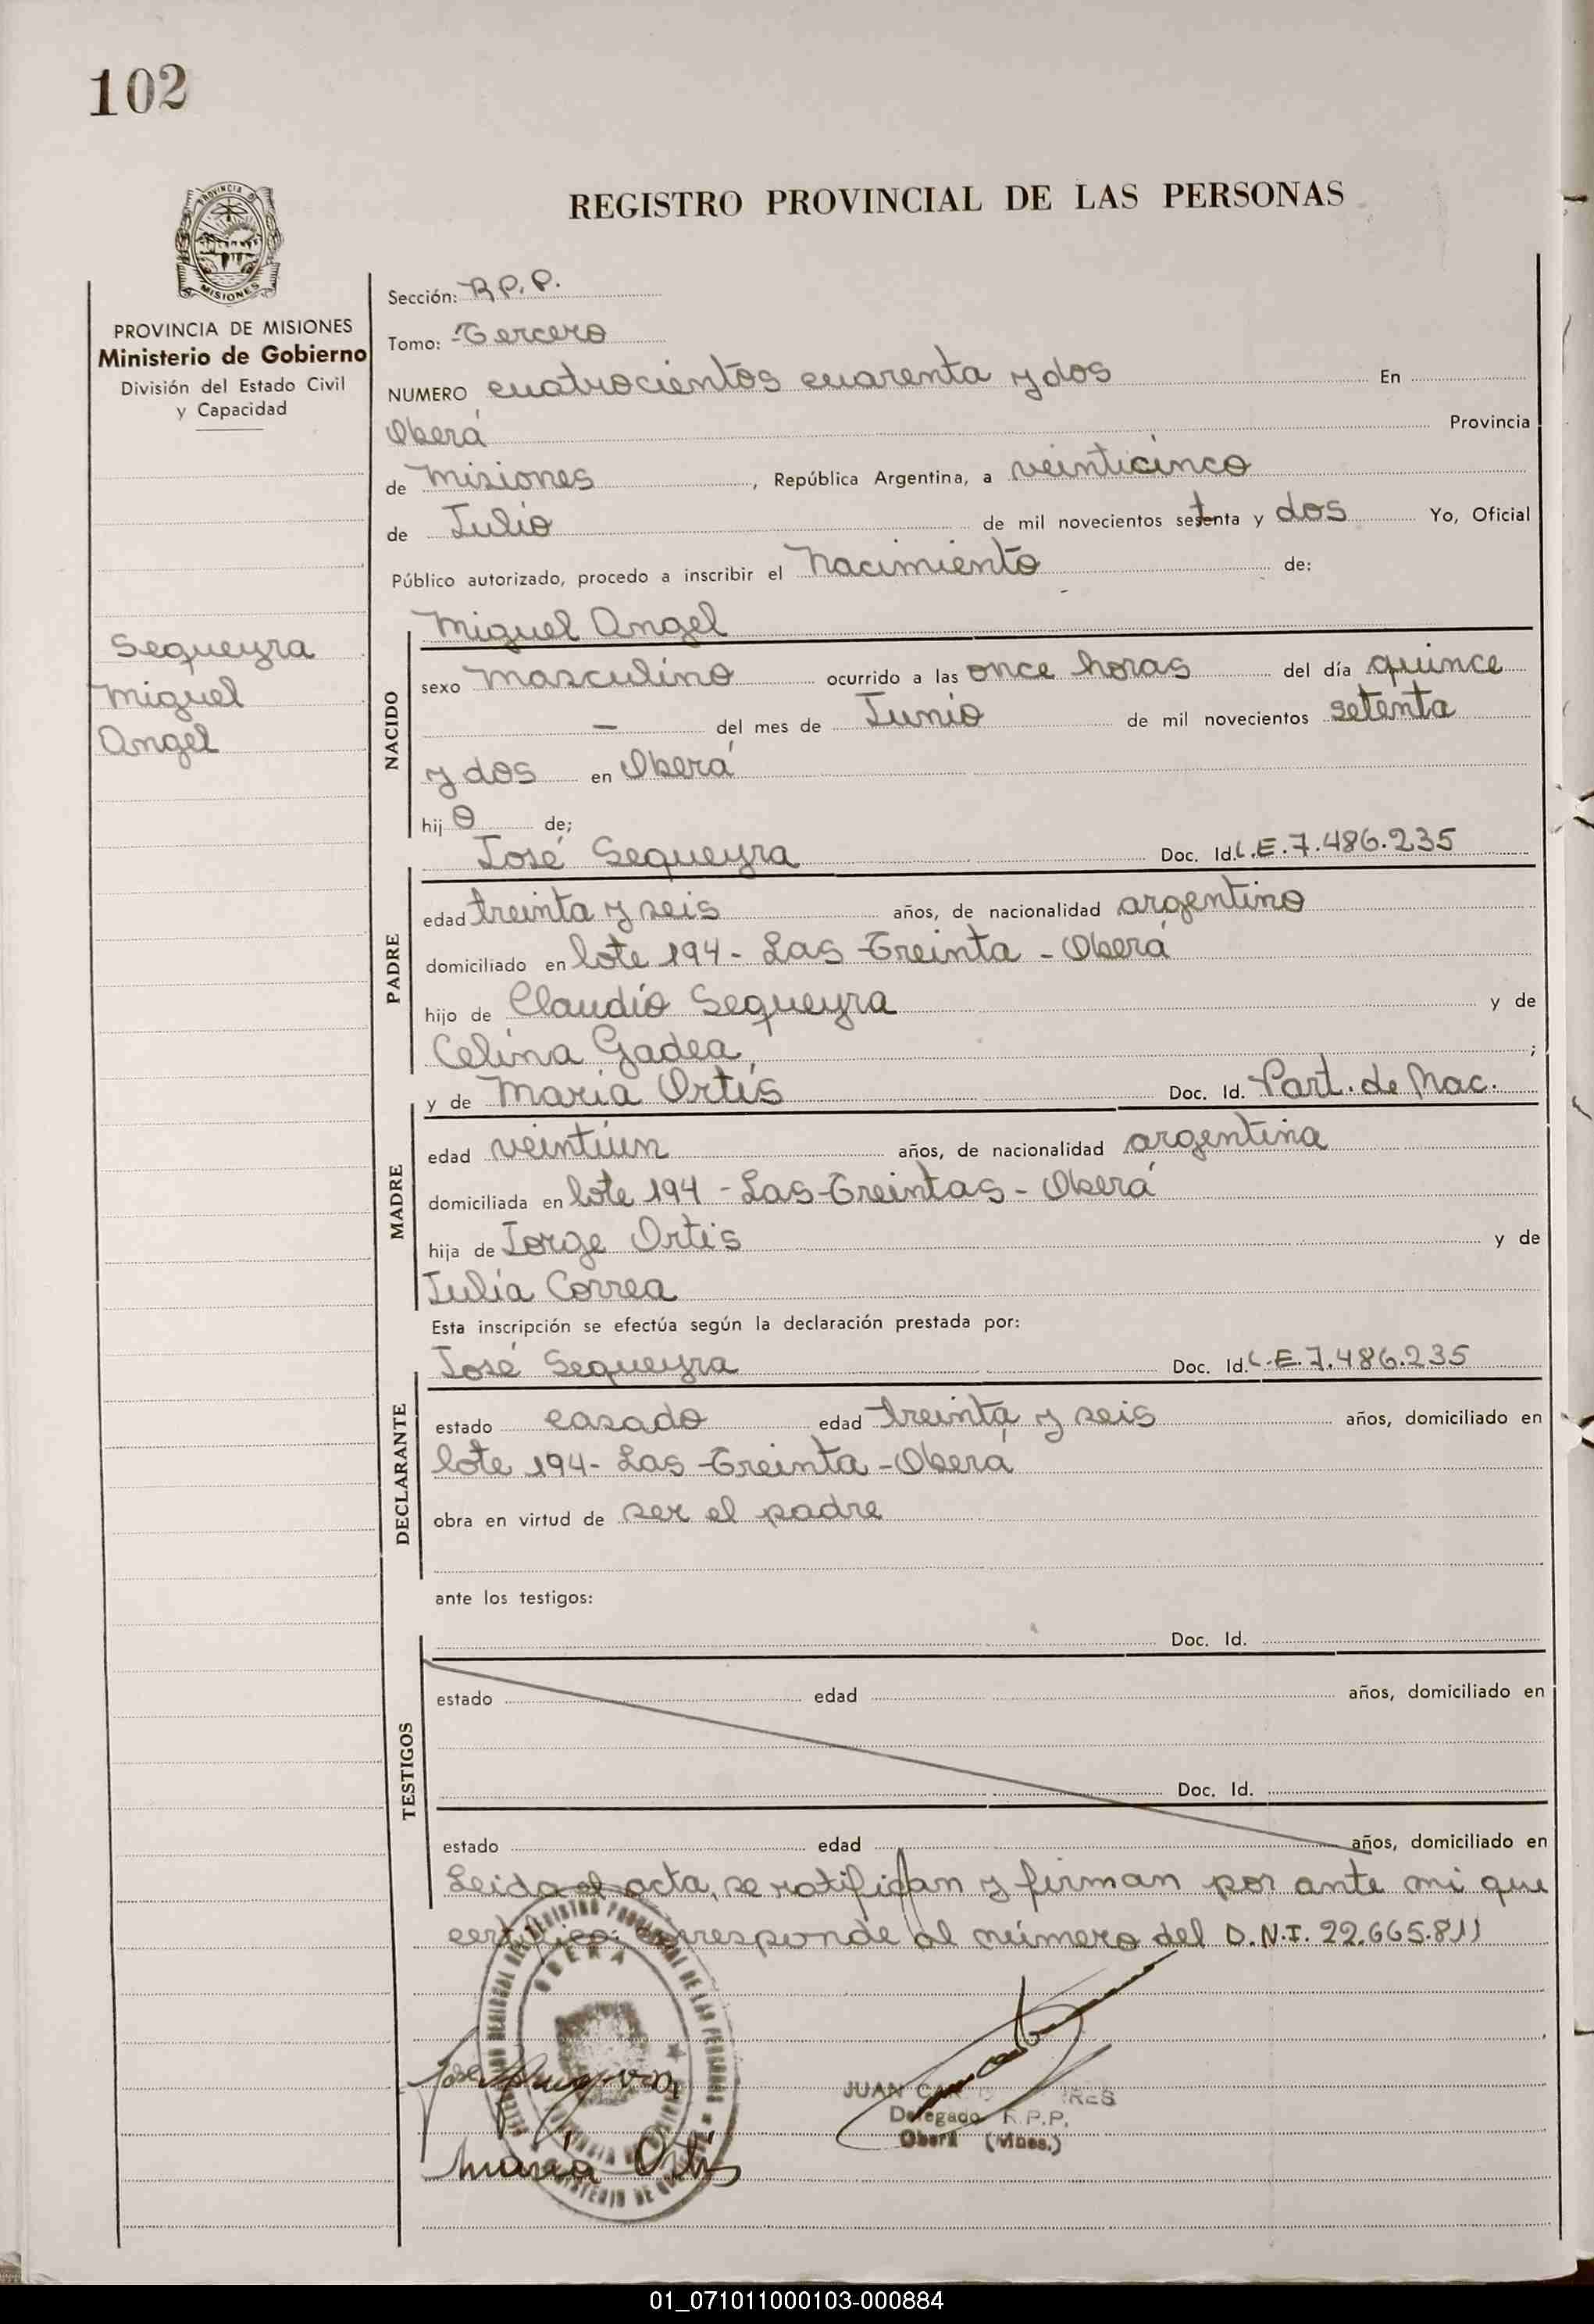 102
PROVINCIA
MISIONES
REGISTRO PROVINCIAL DE LAS PERSONAS
PROVINCIA DE MISIONES
Ministerio de Gobierno
División del Estado Civil
y Capacidad
Sequeyra
Miguel
Angel
Sección: R.P.P.
Tomo: Tercero
NUMERO cuatrocientos cuarenta y dos En
Oberá Provincia
de Misiones, República Argentina, a veinticinco
de Julio de mil novecientos setenta y dos Yo, Oficial
Público autorizado, procedo a inscribir el Nacimiento de:
Miguel Angel
NACIDO
sexo masculino ocurrido a las once horas del día quince
— del mes de Junio de mil novecientos setenta
y dos en Oberá
hijo de;
José Sequeyra Doc. Id. L.E. 7.486.235
PADRE
edad treinta y seis años, de nacionalidad argentino
domiciliado en lote 194 - Las Treinta - Oberá
hijo de Claudio Sequeyra y de
Celina Gadea ;
y de María Ortís Doc. Id. Part. de Nac.
MADRE
edad veintiún años, de nacionalidad argentina
domiciliada en lote 194 - Las Treintas - Oberá
hija de Jorge Ortis y de
Julia Correa
Esta inscripción se efectúa según la declaración prestada por:
José Sequeyra Doc. Id. L.E. 7.486.235
DECLARANTE
estado casado edad treinta y seis años, domiciliado en
lote 194 - Las Treinta - Oberá
obra en virtud de ser el padre
ante los testigos:
Doc. Id.
TESTIGOS
estado edad años, domiciliado en
Doc. Id.
estado edad años, domiciliado en
Leida el acta, se ratifican y firman por ante mi que
certifico: corresponde al número del D.N.I. 22.665.811
OBERA
José Sequeyra
JUAN
Delegado R.P.P.
Oberá (Mnes.)
María Ortis
01_071011000103-000884